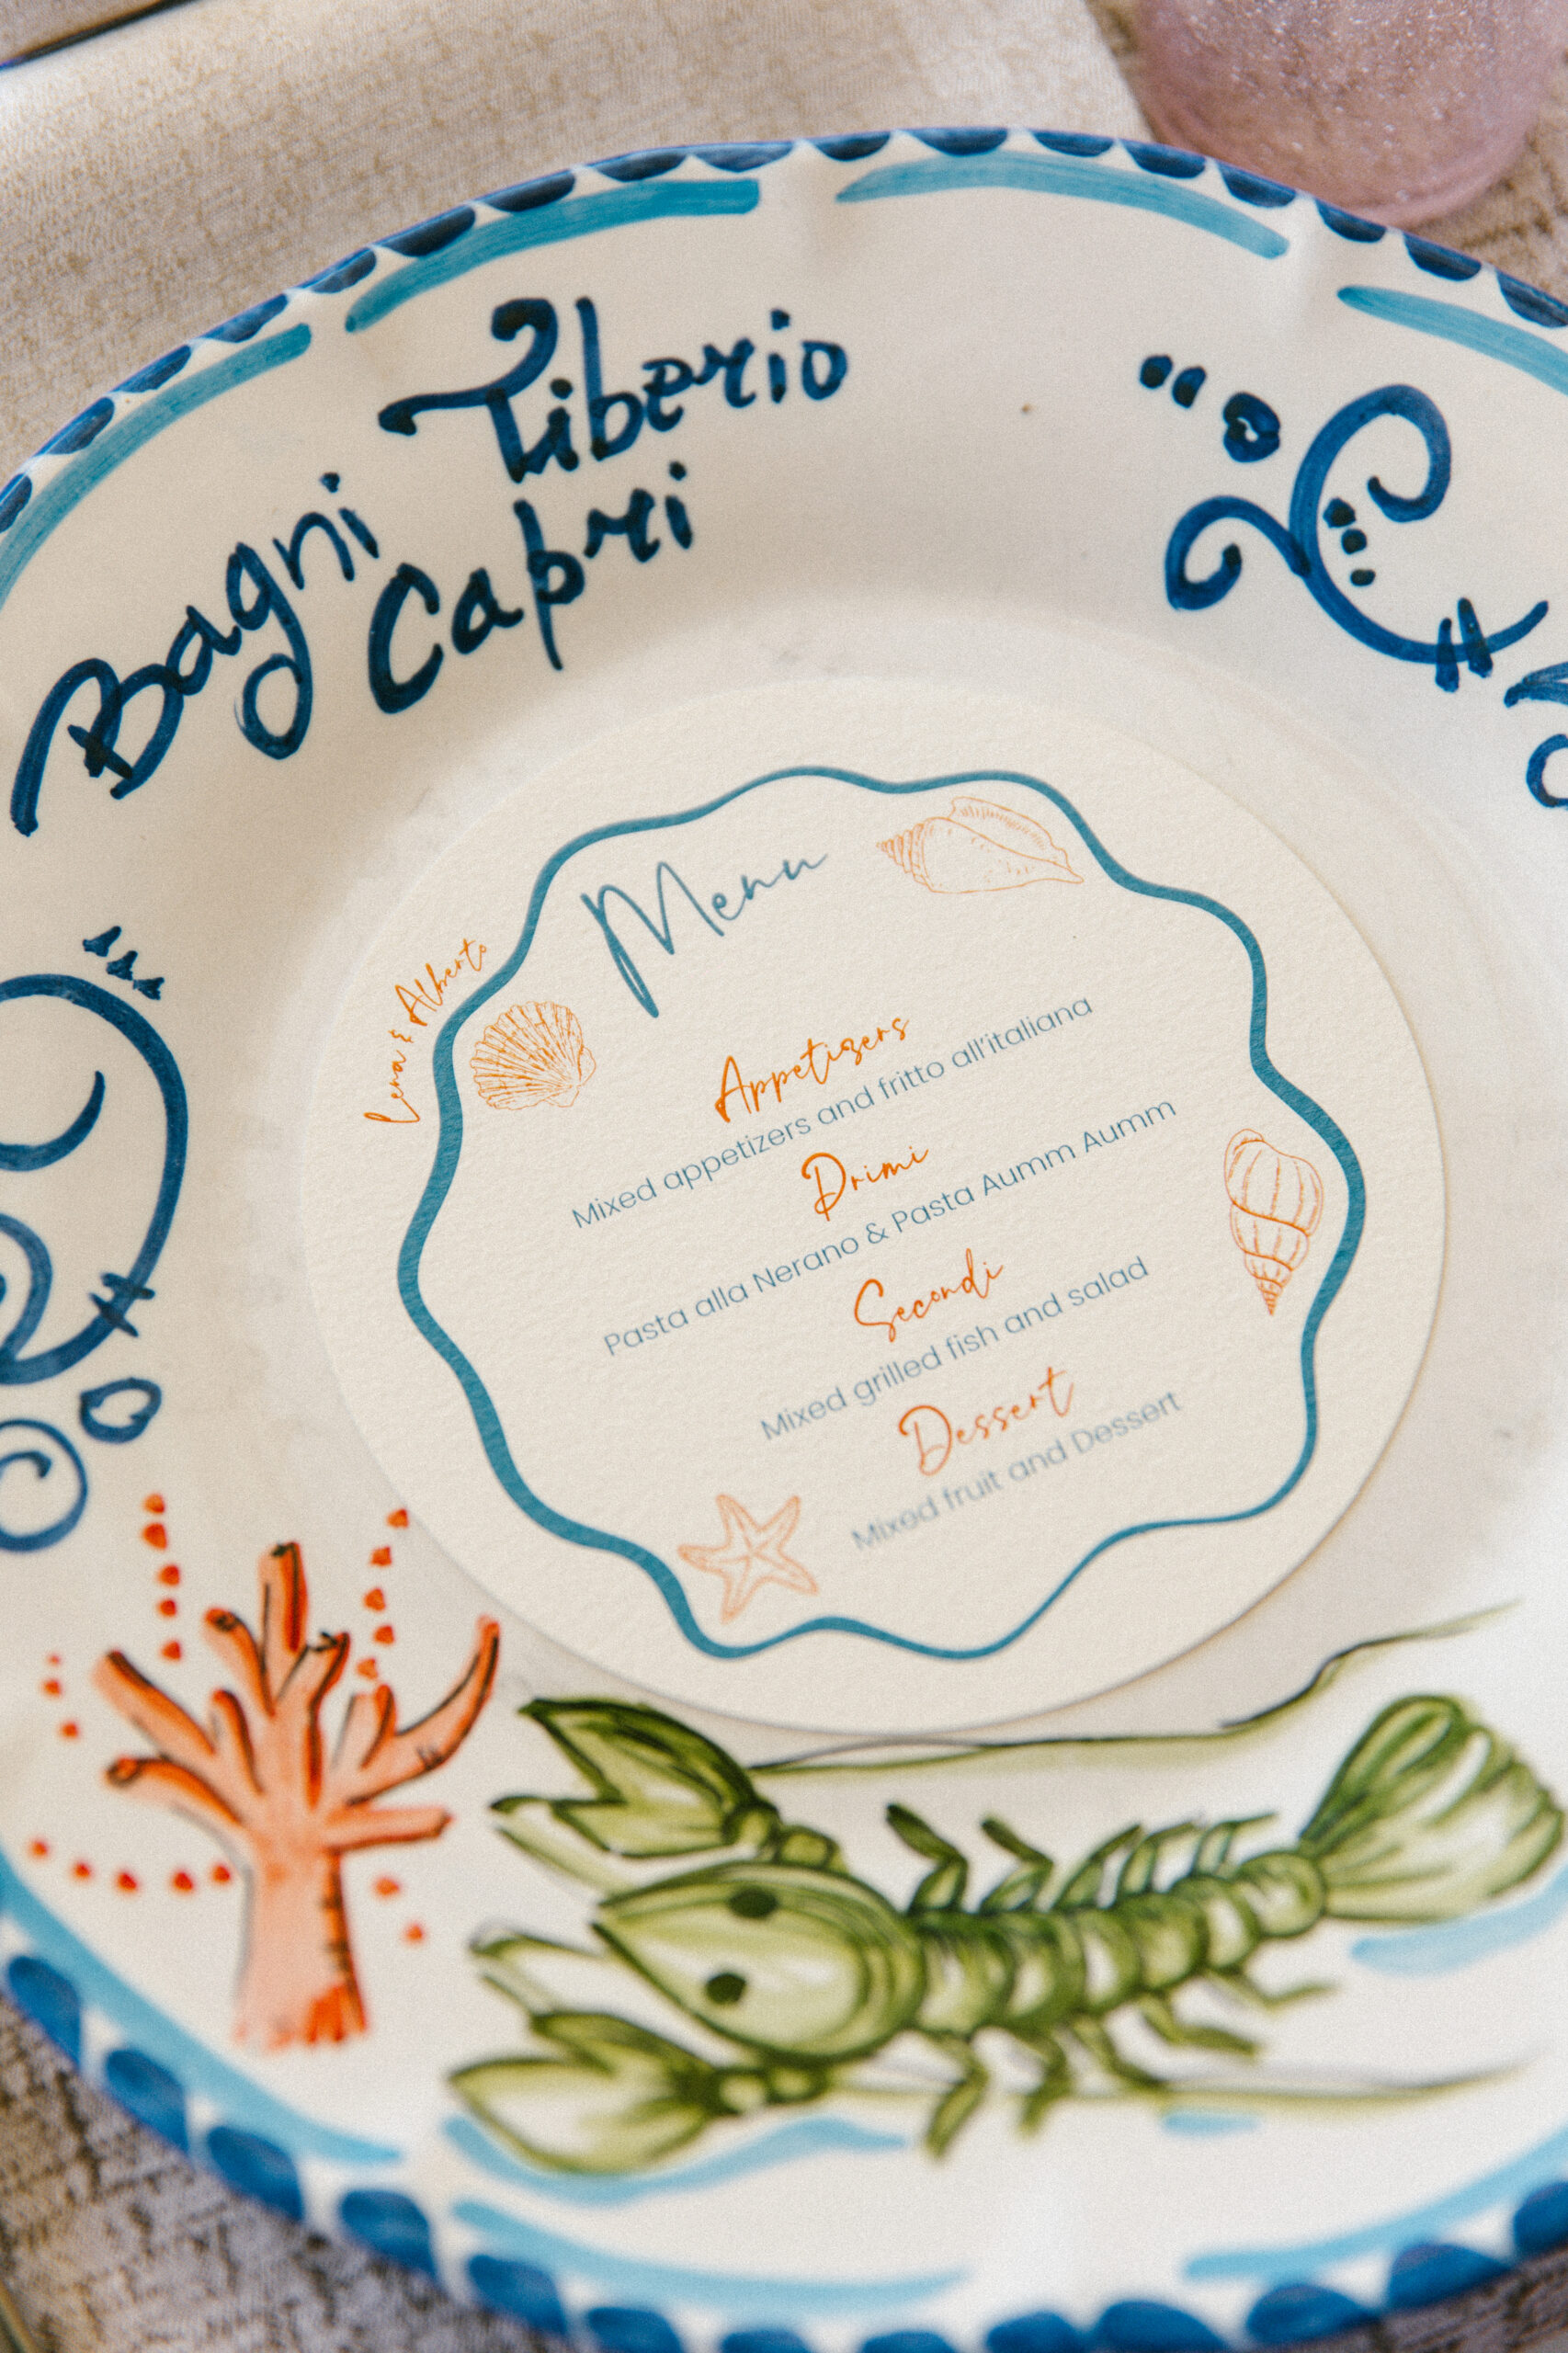 Bagni Tiberio
Capri
Lena & Alberto
Menu
Appetizers
Mixed appetizers and fritto all'italiana
Primi
Pasta alla Nerano & Pasta Aumm Aumm
Secondi
Mixed grilled fish and salad
Dessert
Mixed fruit and Dessert